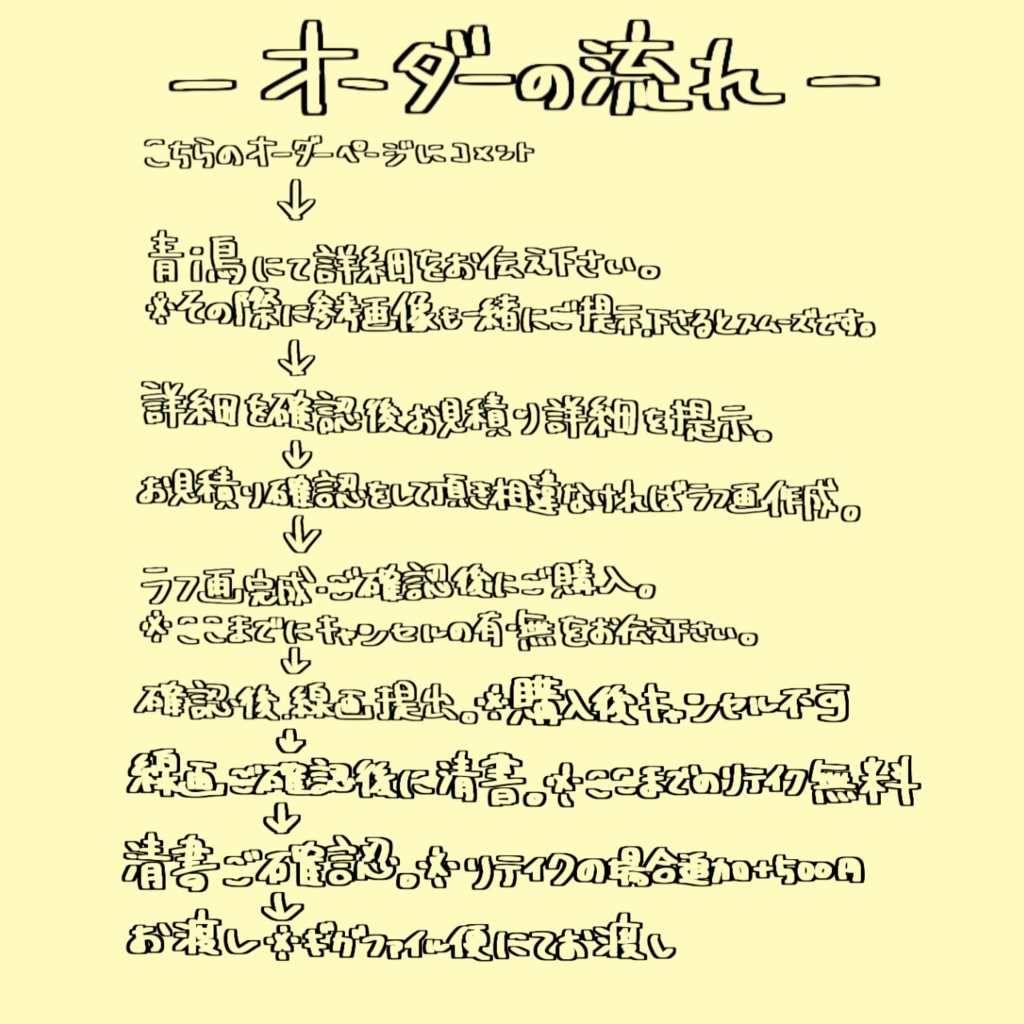 －オーダーの流れ－
こちらのオーダーページにコメント
↓
青い鳥にて詳細をお伝え下さい。
※その際に参考画像も一緒にご提示下さるとスムーズです。
↓
詳細を確認後お見積り詳細を提示。
↓
お見積り確認をして頂き相違なければラフ画作成。
↓
ラフ画完成・ご確認後にご購入。
※ここまでにキャンセルの有・無をお伝え下さい。
↓
確認後、線画提出。※購入後キャンセル不可
↓
線画ご確認後に清書。※ここまでのリテイク無料
↓
清書ご確認。※リテイクの場合追加+500円
↓
お渡し※ギガファイル便にてお渡し